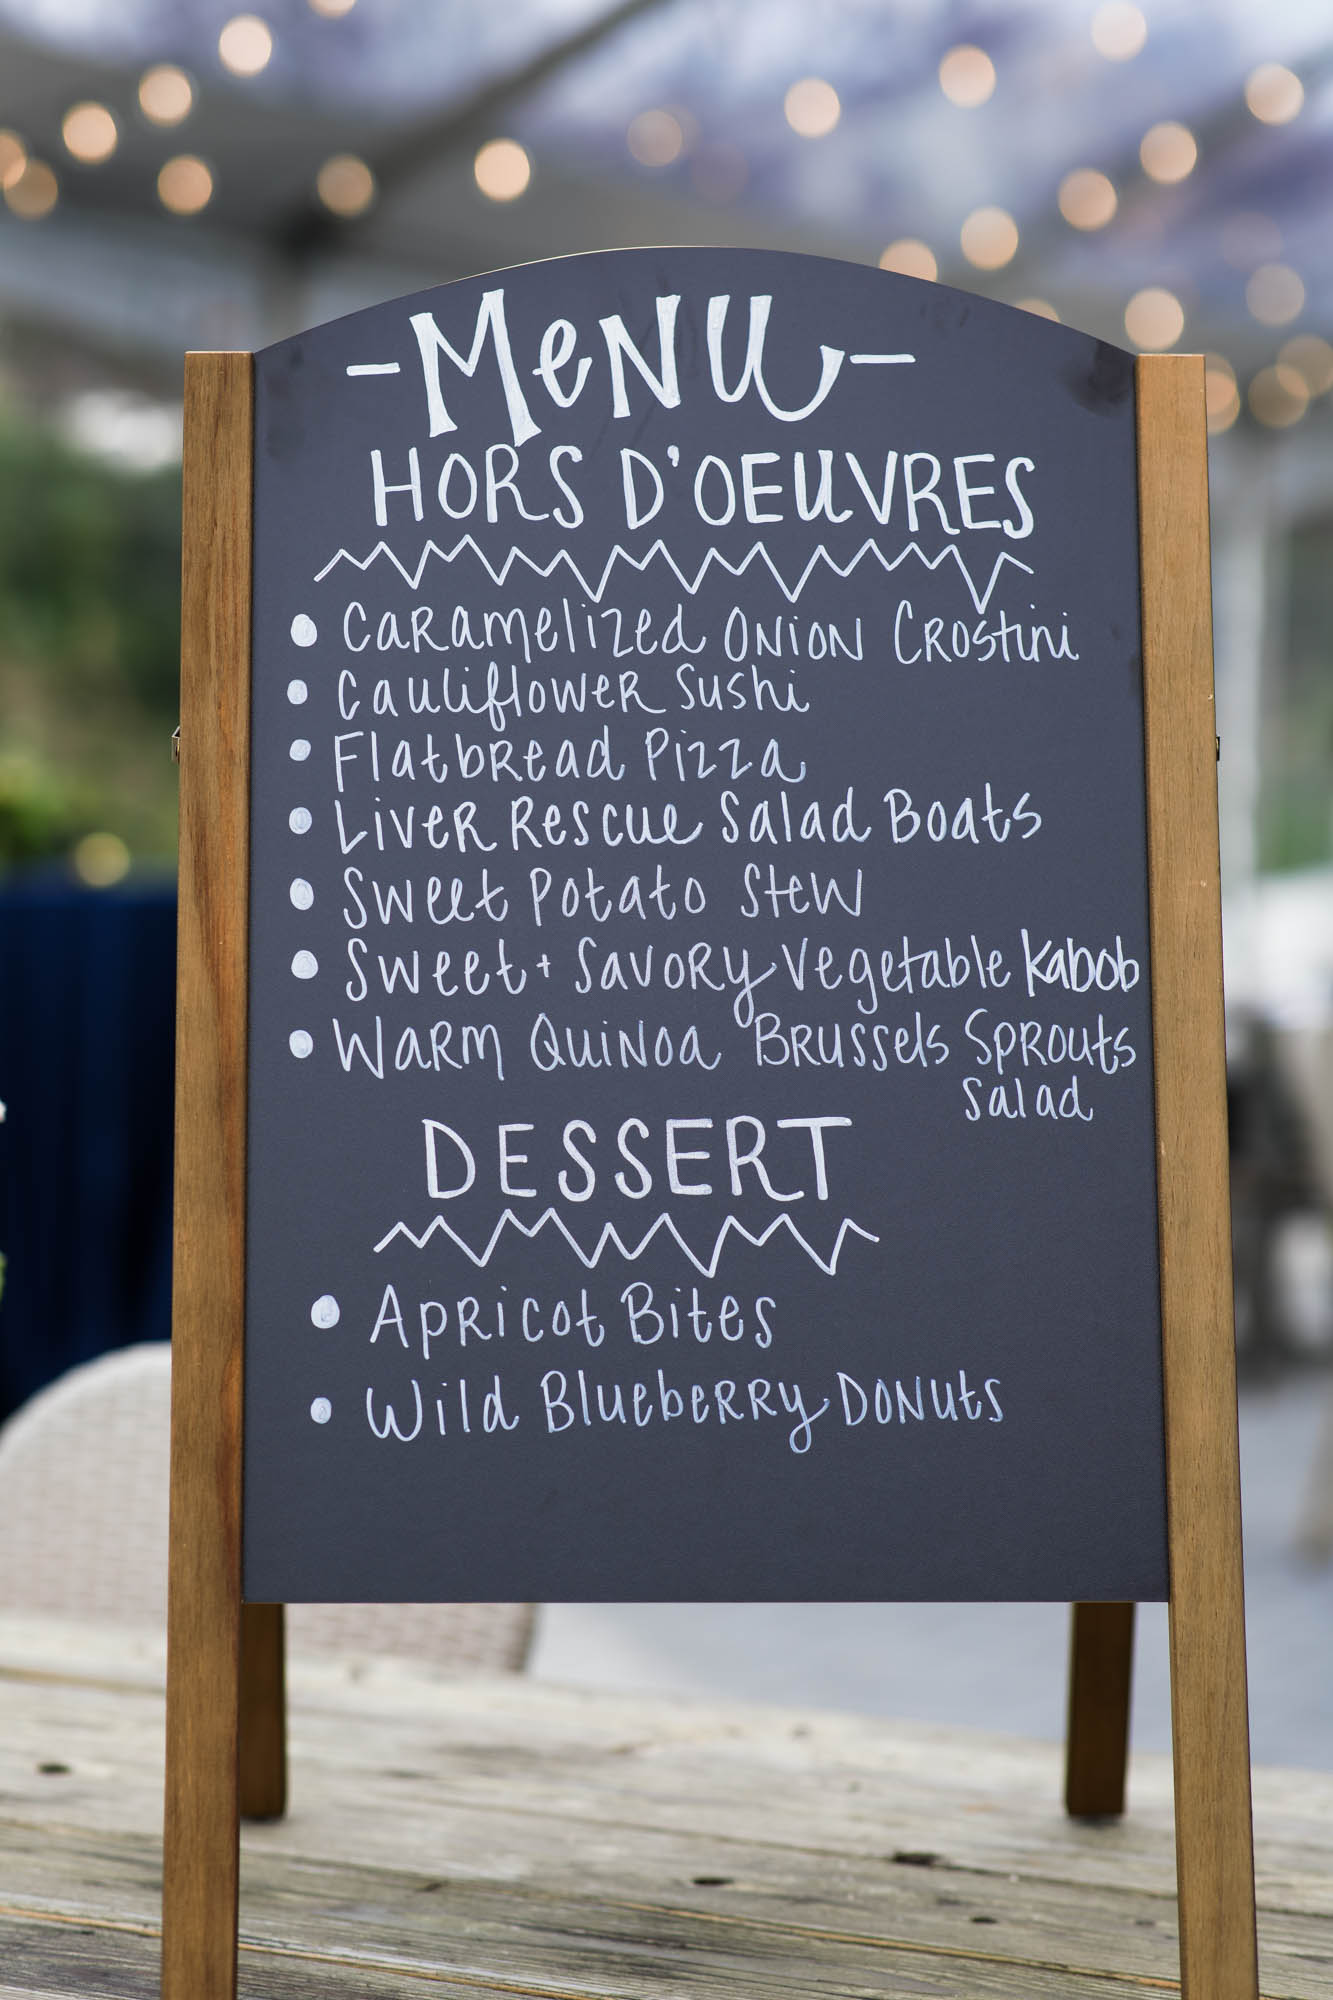 - MeNU -
HORS D'OEUVRES
• CARAmelized ONiON CROStini
• CauliflOWER Sushi
• FlatbRead Pizza
• LiveR Rescue Salad Boats
• Sweet Potato Stew
• Sweet + SavoRy Vegetable Kabob
• WaRM QuiNoa BRussels SpRouts
Salad
DESSERT
• ApRicot Bites
• Wild BluebeRRy DoNuts